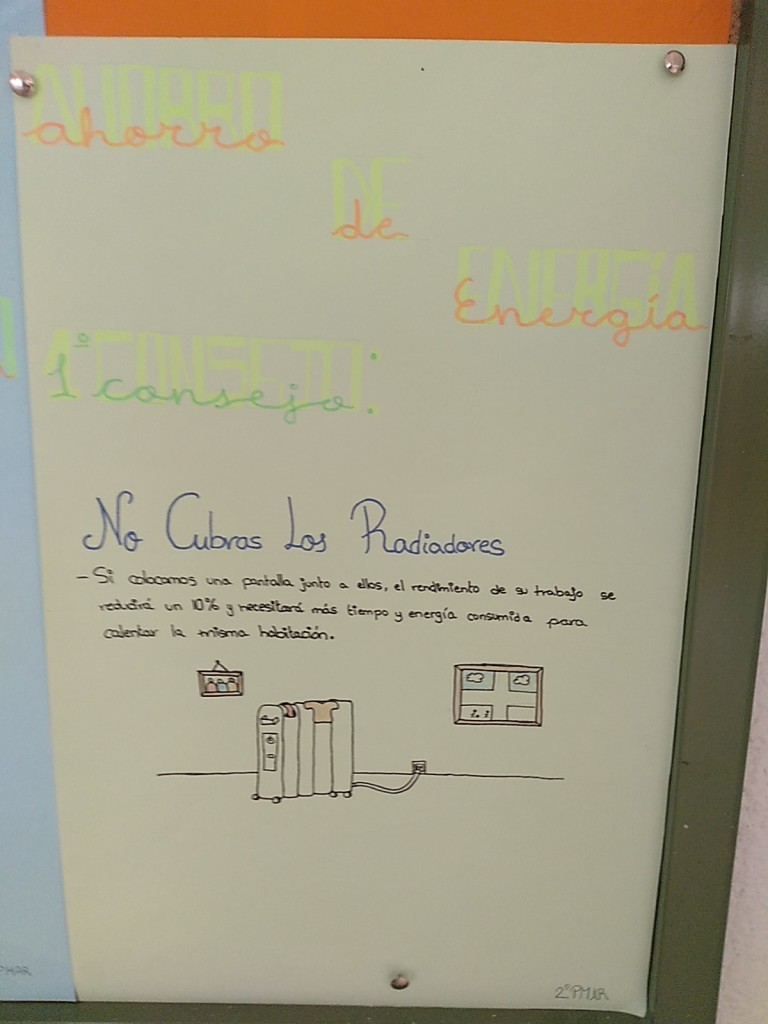 AHORRO
ahorro
DE
de
ENERGÍA
Energía
1º CONSEJO:
1º consejo:
No Cubras Los Radiadores
- Si colocamos una pantalla junto a ellos, el rendimiento de su trabajo se
reducirá un 10% y necesitará más tiempo y energía consumida para
calentar la misma habitación.
2º PMAR
PMAR